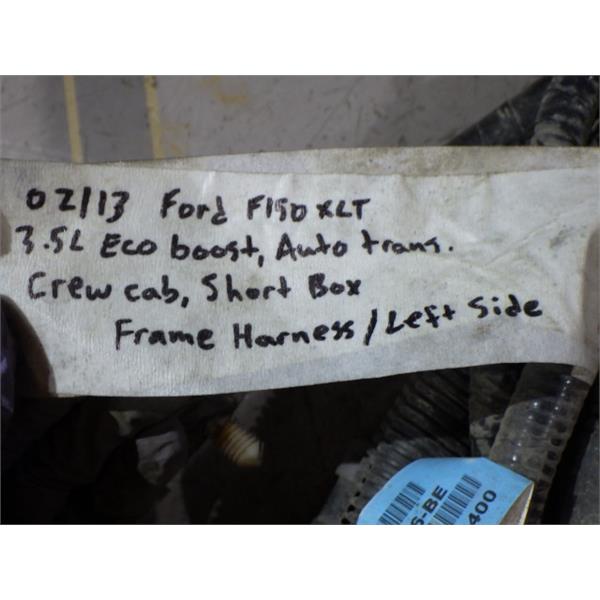 02/13 Ford F150 XLT
3.5L Eco boost, Auto trans.
Crew cab, Short Box
Frame Harness / Left Side
6-BE
400